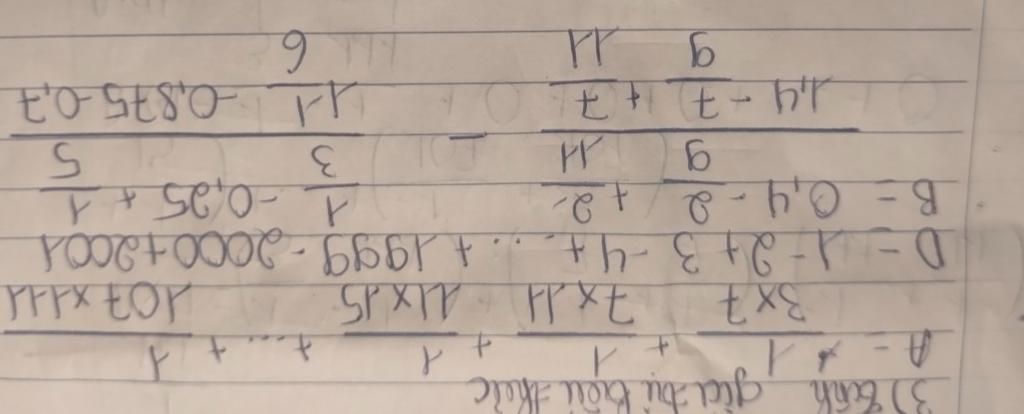 3) Tính giá trị biểu thức
A = 1/3x7 + 1/7x11 + 1/11x15 + ... + 1/107x111
D = 1 - 2 + 3 - 4 + ... + 1999 - 2000 + 2001
B = (0,4 - 2/9 + 2/11)/(1,4 - 7/9 + 7/11) - (1/3 - 0,25 + 1/5)/(1 1/6 - 0,875 - 0,7)